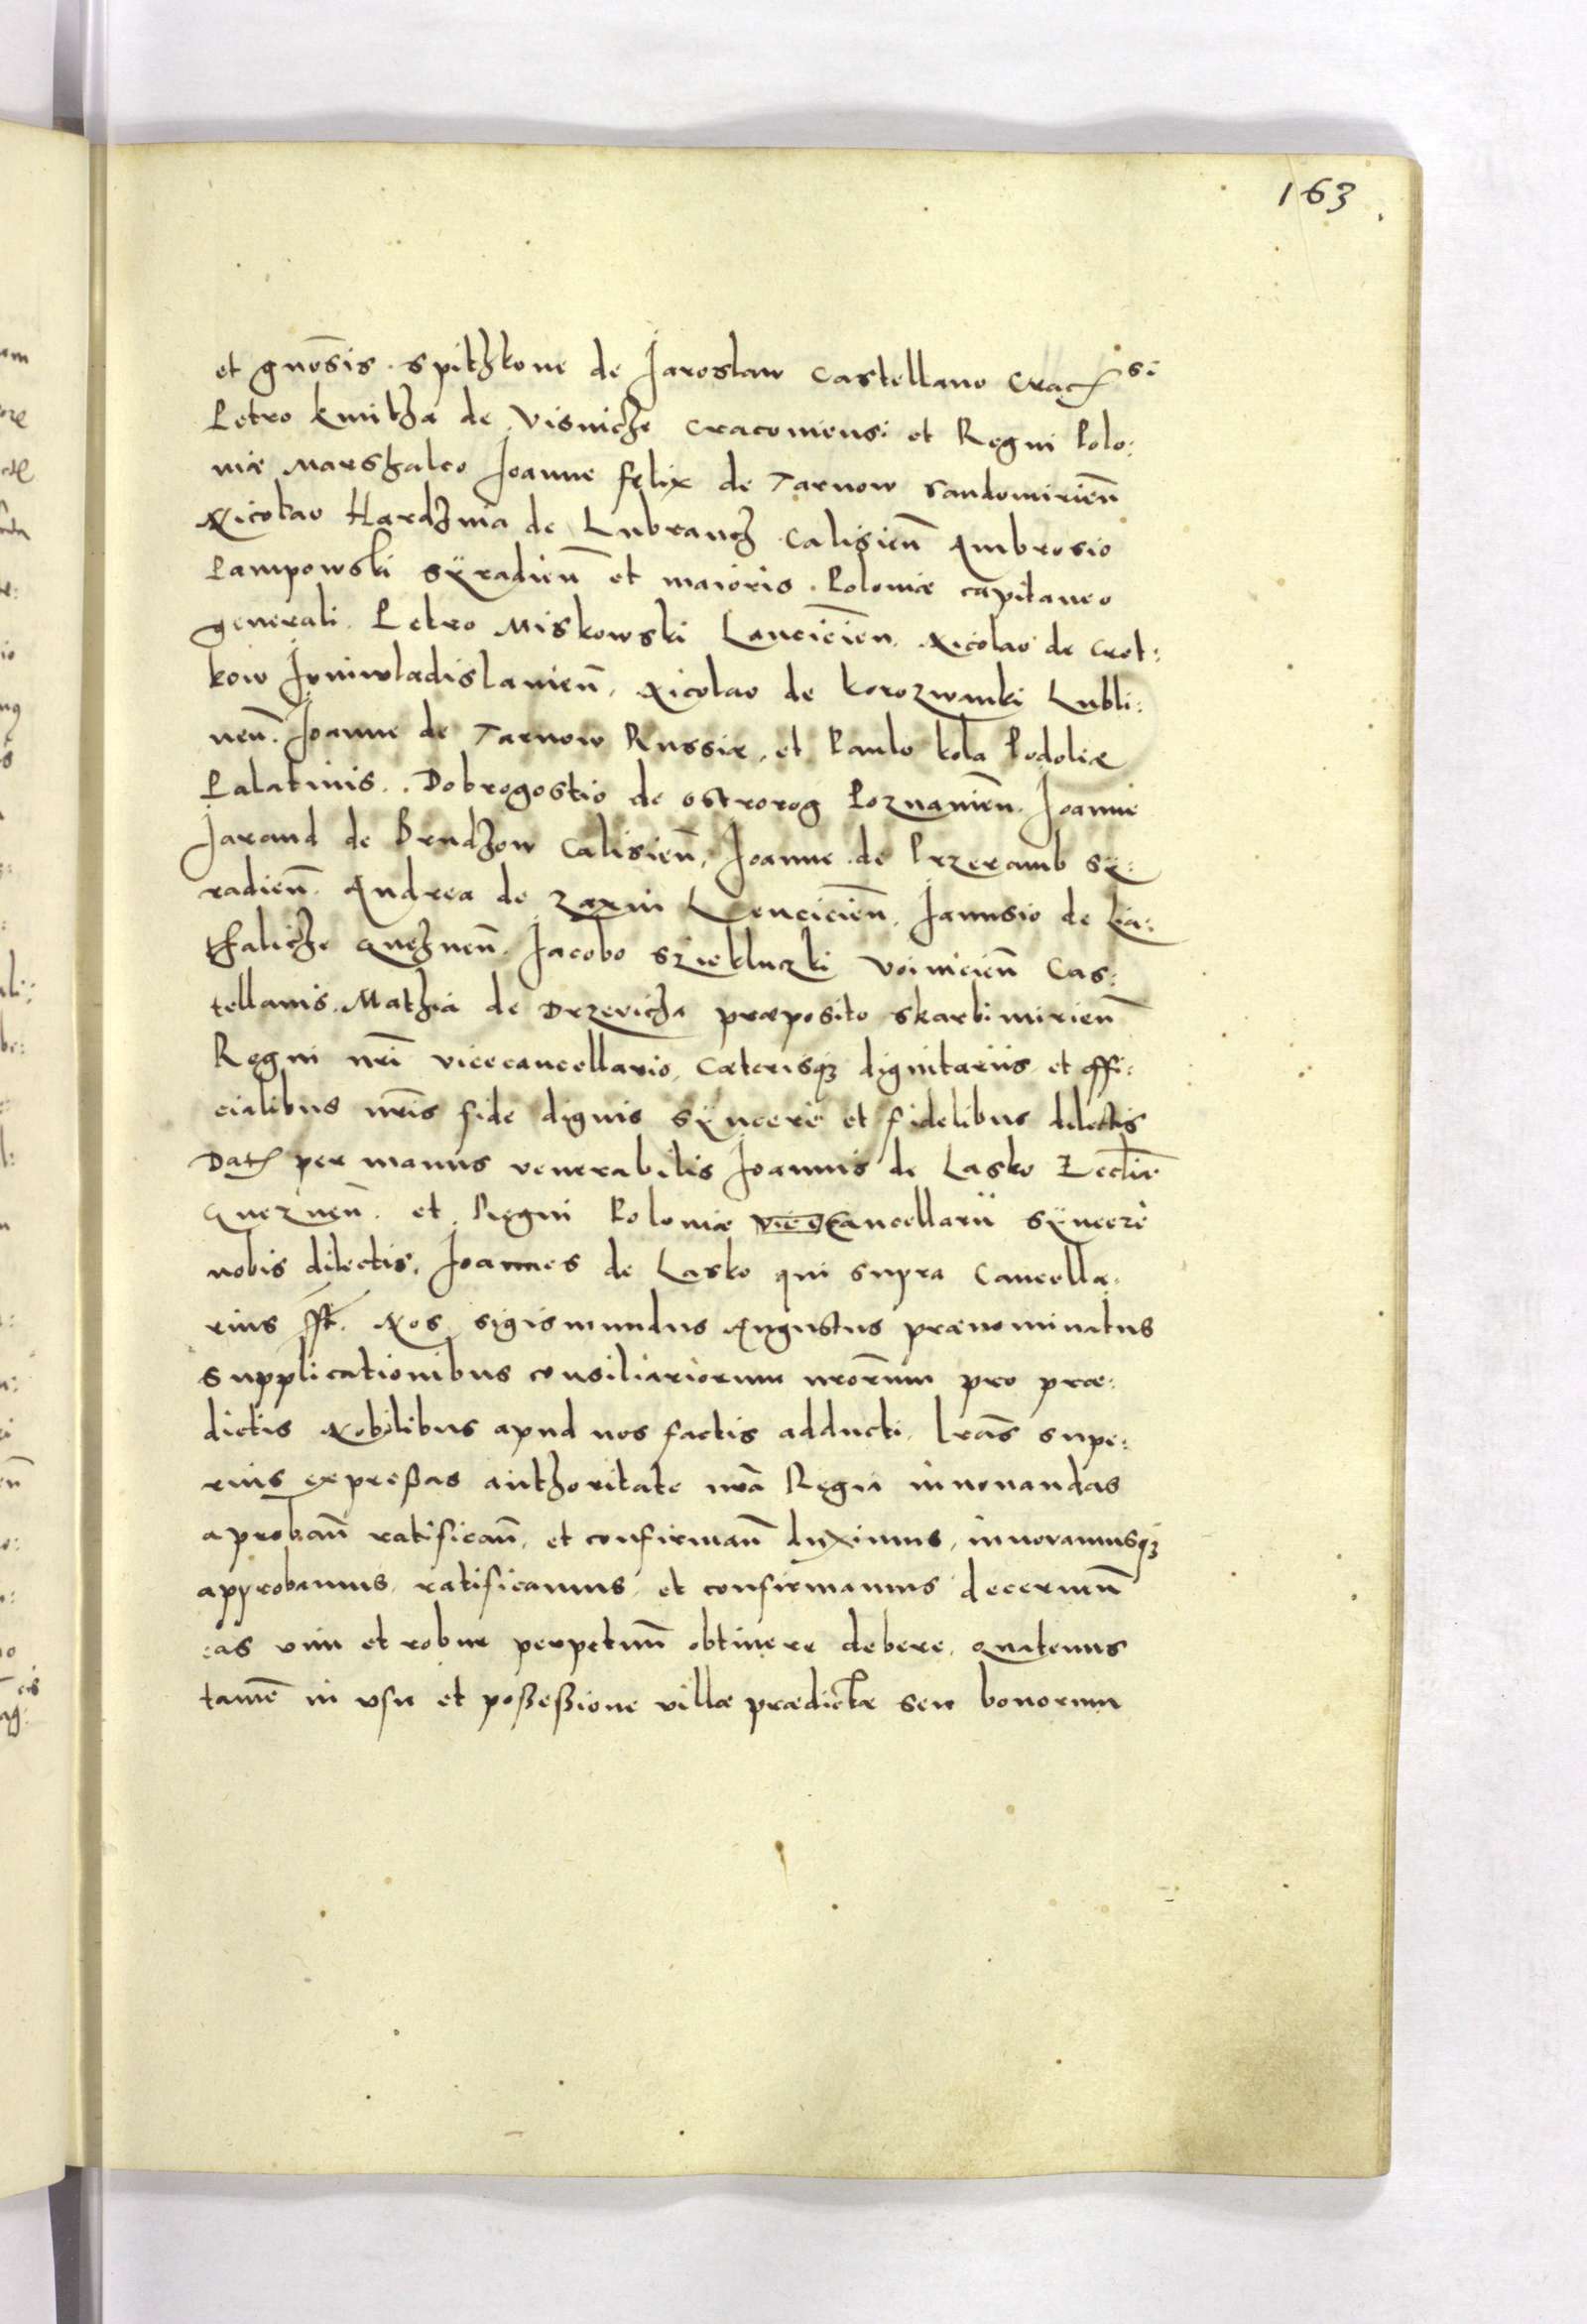 163
et gnosis . spithkone de Jaroslaw Castellano Crac si
Petro kmitha de visniche cracoviensi et Regni Polo:
niæ Marshalco Joanne felix de Tarnow Sandomirien
Nicolao Hardzina de Lubranch Calisien Ambrosio
Pampowski syradien et maioris . Poloniæ capitaneo
generali. Petro Miskowski Lancicien. Nicolao de Crot:
kow Juniwladislavien, Nicolao de korozwanki Lubli:
nen. Joanne de Tarnow Russiæ, et Paulo kola Podoliæ
Palatinis. . Dobrogostio de ostrorog Poznanien. Joanne
Jarand de Brudzow Calisien, Joanne de Przeramb sy:
radien. Andrea de Lencicien. Janusio de Lia:
thaliche Gnezhnen. Jacobo sziekluczki voinicien Cas:
tellanis. Mathia de Drzevicha præposito skarbimirien
Regni nri vicecancellario, Cæterisq; dignitariis et offi:
cialibus nris fide dignis syncere et fidelibus dilectis
Dat per manus venerabilis Joannis de Lasko Eccliæ
Gneznen. et Regni Poloniæ Cancellarii syncere
nobis dilectis, Joannes de Lasko qui supra Cancella:
rius sst. Nos sigismundus Augustus prænominatus
supplicationibus consiliariorum nrorum pro præ:
dictis Nobilibus apud nos factis adducti, lras supe:
rius expreßas authoritate nra Regia innovandas
aproban ratifican, et confirman duximus, innovamusq;
approbamus, ratificamus, et confirmamus decernen
eas vim et robur perpetuu obtinere debere, quatenus
tame in usu et poßeßione villæ prædictæ seu bonorum